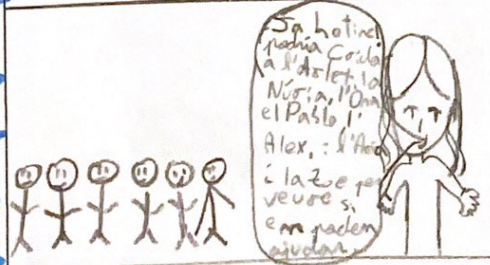 Ja ho tinc
podria Crida
a l'Arlet, la
Núria, l'Ona
el Pablo l'
Alex, i l'Aria
i la Zoe per
veure si
em poden
ajudar.